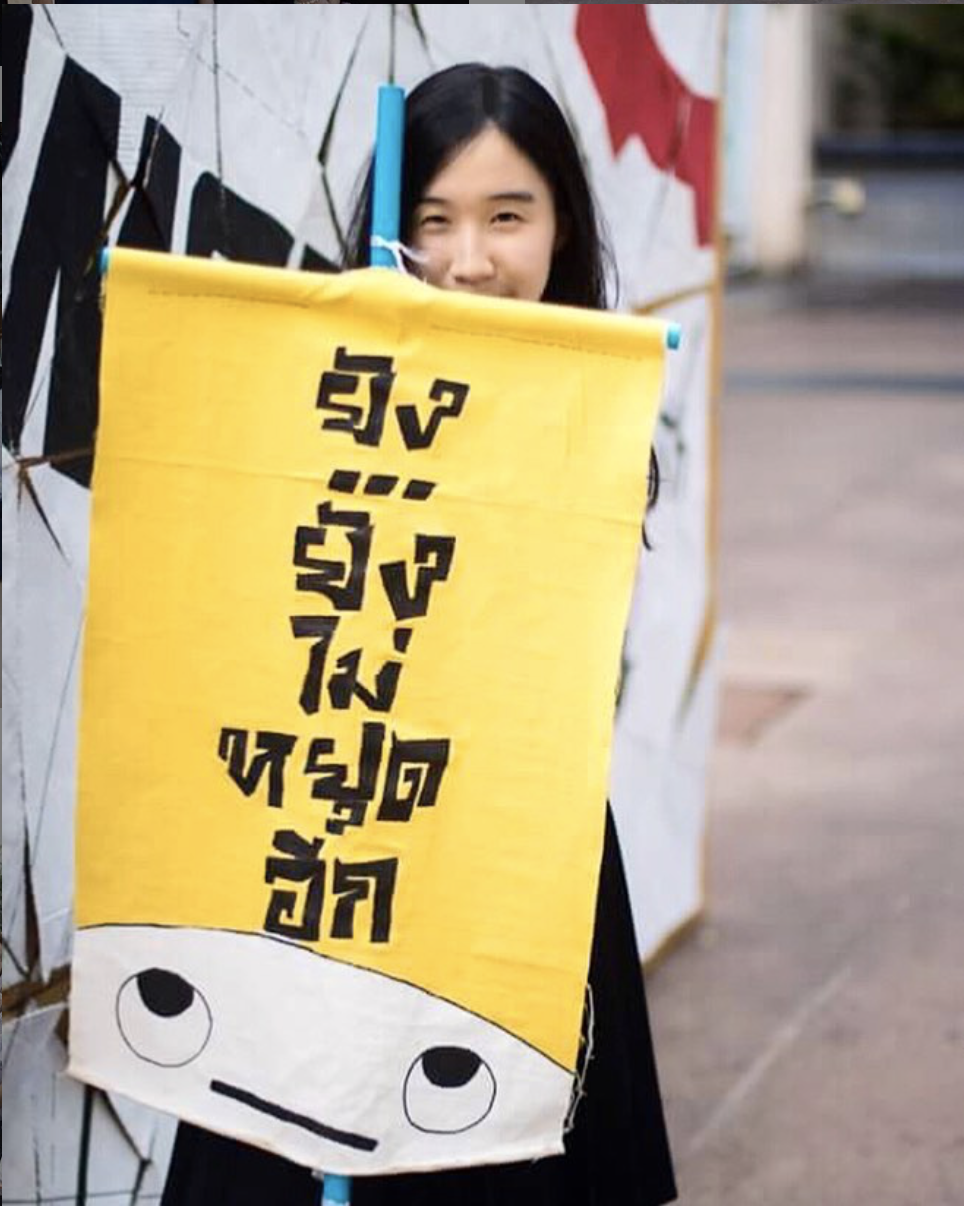 ยิง
...
ยัง
ไม่
หยุด
อีก